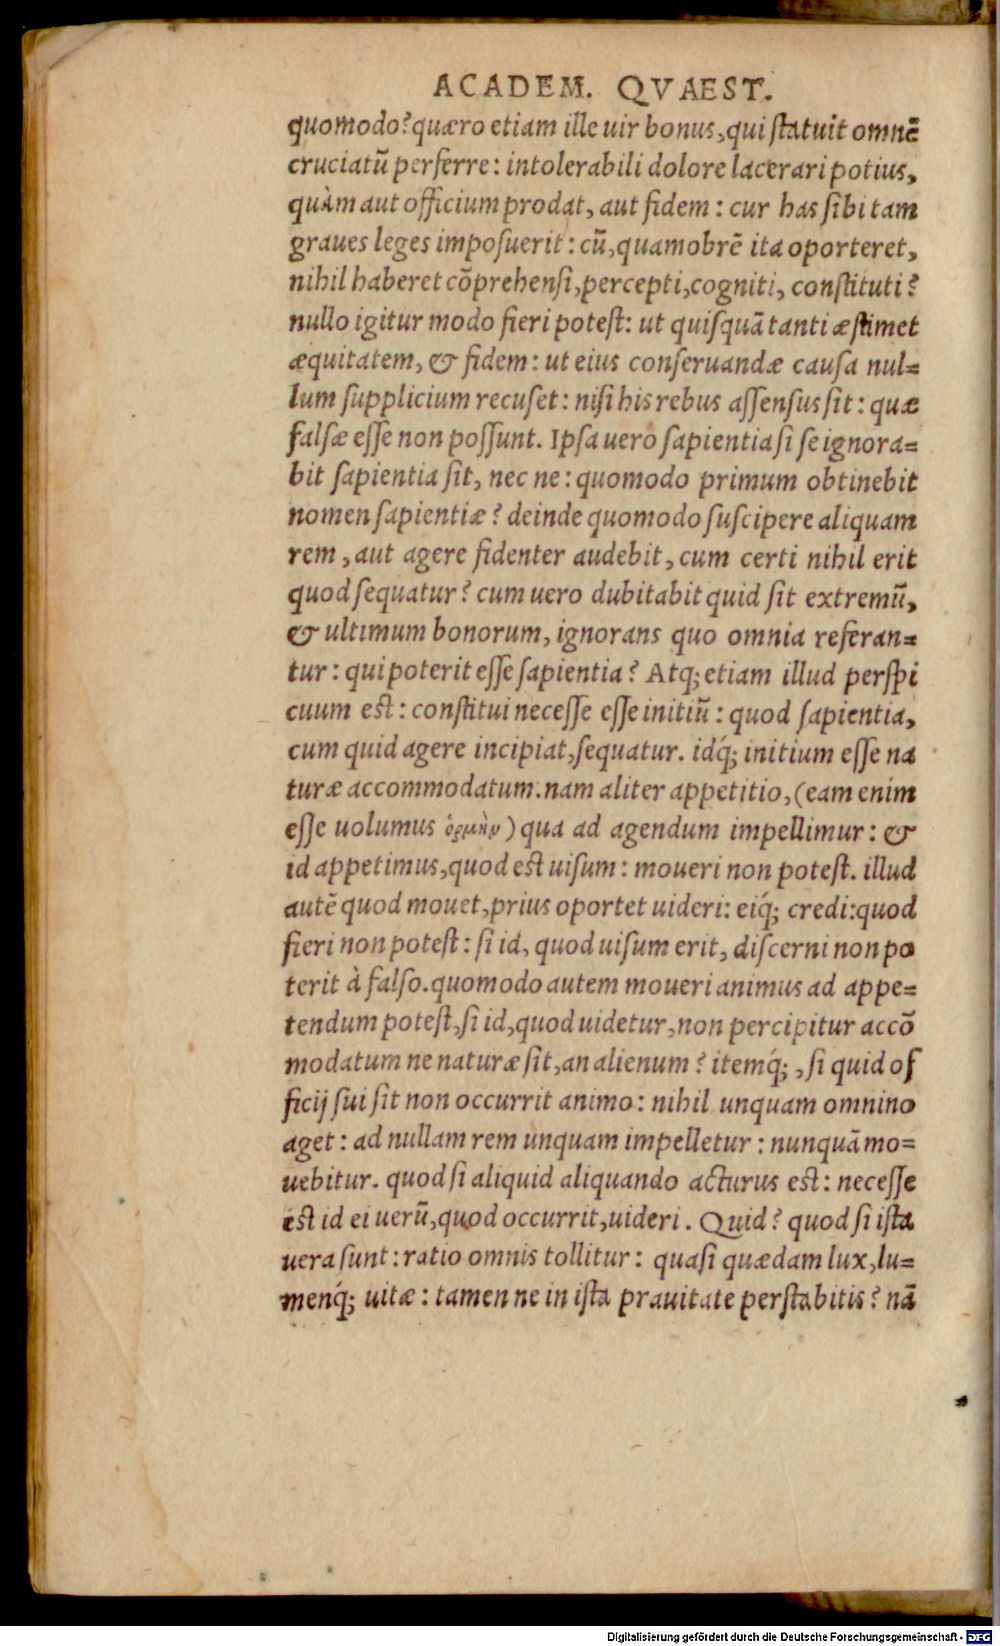 ACADEM. QVAEST.
quomodo? quæro etiam ille uir bonus, qui statuit omnē
cruciatū perferre: intolerabili dolore lacerari potius,
quàm aut officium prodat, aut fidem: cur has sibi tam
graues leges imposuerit: cū, quamobrē ita oporteret,
nihil haberet cōprehensi, percepti, cogniti, constituti?
nullo igitur modo fieri potest: ut quisquā tanti æstimet
æquitatem, & fidem: ut eius conseruandæ causa nul=
lum supplicium recuset: nisi his rebus assensus sit: quæ
falsæ esse non possunt. Ipsa uero sapientia si se ignora=
bit sapientia sit, nec ne: quomodo primum obtinebit
nomen sapientiæ? deinde quomodo suscipere aliquam
rem, aut agere fidenter audebit, cum certi nihil erit
quod sequatur? cum uero dubitabit quid sit extremū,
& ultimum bonorum, ignorans quo omnia referan=
tur: qui poterit esse sapientia? Atq; etiam illud perspi
cuum est: constitui necesse esse initiū: quod sapientia,
cum quid agere incipiat, sequatur. idq́; initium esse na
turæ accommodatum. nam aliter appetitio, (eam enim
esse uolumus ὁρμὴν) qua ad agendum impellimur: &
id appetimus, quod est uisum: moueri non potest. illud
autē quod mouet, prius oportet uideri: eiq́; credi: quod
fieri non potest: si id, quod uisum erit, discerni non po
terit à falso. quomodo autem moueri animus ad appe=
tendum potest, si id, quod uidetur, non percipitur accō
modatum ne naturæ sit, an alienum? itemq́; , si quid of
ficij sui sit non occurrit animo: nihil unquam omnino
aget: ad nullam rem unquam impelletur: nunquā mo=
uebitur. quod si aliquid aliquando acturus est: necesse
est id ei uerū, quod occurrit, uideri. Quid? quod si ista
uera sunt: ratio omnis tollitur: quasi quædam lux, lu=
menq́; uitæ: tamen ne in ista prauitate perstabitis? nā
Digitalisierung gefördert durch die Deutsche Forschungsgemeinschaft - DFG